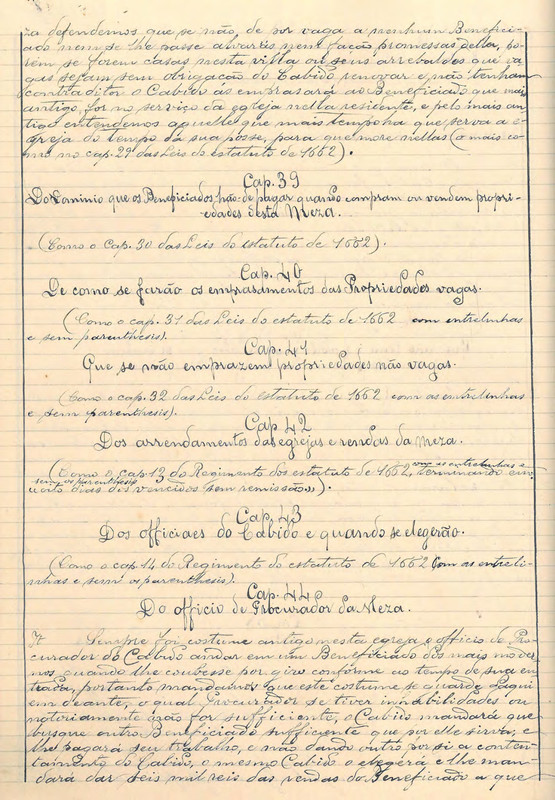 ra defendemos que se não, de por vaga a nenhum Benefici-
ado nem se lhe passe alvaréis nem façáo, promessas dellas, po-
rém se forem casas nesta villa ou seus arrebaldes que va-
gas sejam sem obrigação do Cabido renovar e não tenham
contraditor o Cabido ás emprasará ao Beneficiado que mais
antigo, for no serviço da egreja nella residente, e pelo mais an-
tigo entendemos aquelle que mais tempo ha que serva a e-
greja do tempo da sua posse, para que more nellas (o mais co-
mo no cap. 29 das Leis do estatuto de 1662).
Cap. 39
Do Dominio que os Beneficiados hão de pagar quando compram ou vendem propri-
edades desta Meza.
(Como o Cap. 30 das Leis do estatuto de 1662).
Cap. 40
De como se farão os emprasamentos das Propriedades vagas.
(Como o cap. 31 das Leis do estatuto de 1662 com entrelinhas
e sem parenthesis).
Cap. 41
Que se não emprazem propriedades não vagas.
(Como o cap. 32 das Leis do estatuto de 1662 com as entrelinhas
e sem parenthesis).
Cap. 42
Dos arrendamentos das egrejas e rendas da Meza.
(Como o Cap. 13 do Regimento dos estatuto de 1662, com as entrelinhas e
sem os parenthesis terminando em:
oito dias dis vencidos sem remissão»).
Cap. 43
Dos officiaes do Cabido e quando se elegerão.
(Como o cap. 14 do Regimento do estatuto de 1662 com as entreli-
nhas e sem os parenthesis).
Cap. 44
Do officio de Procurador da Meza.
It Sempre foi costume antigo nesta egreja o officio de Pro-
curador do Cabido andar em um Beneficiado dos mais moder-
nos quando lhe coubesse por giro conforme ao tempo de sua en-
trada, portanto mandamos que este costume se guarde d'aqui
em deante, o qual Procurador se tiver inhabilidades ou
notoriamente não for sufficiente, o Cabido mandará que
busque outro Beneficiado sufficiente que por elle sirva, e
lhe pagará seu trabalho, e não dando outro por si a conten-
tamento do Cabido, o mesmo Cabido o elegerá e lhe man-
dará dar seis mil reis das rendas do Beneficiado a que